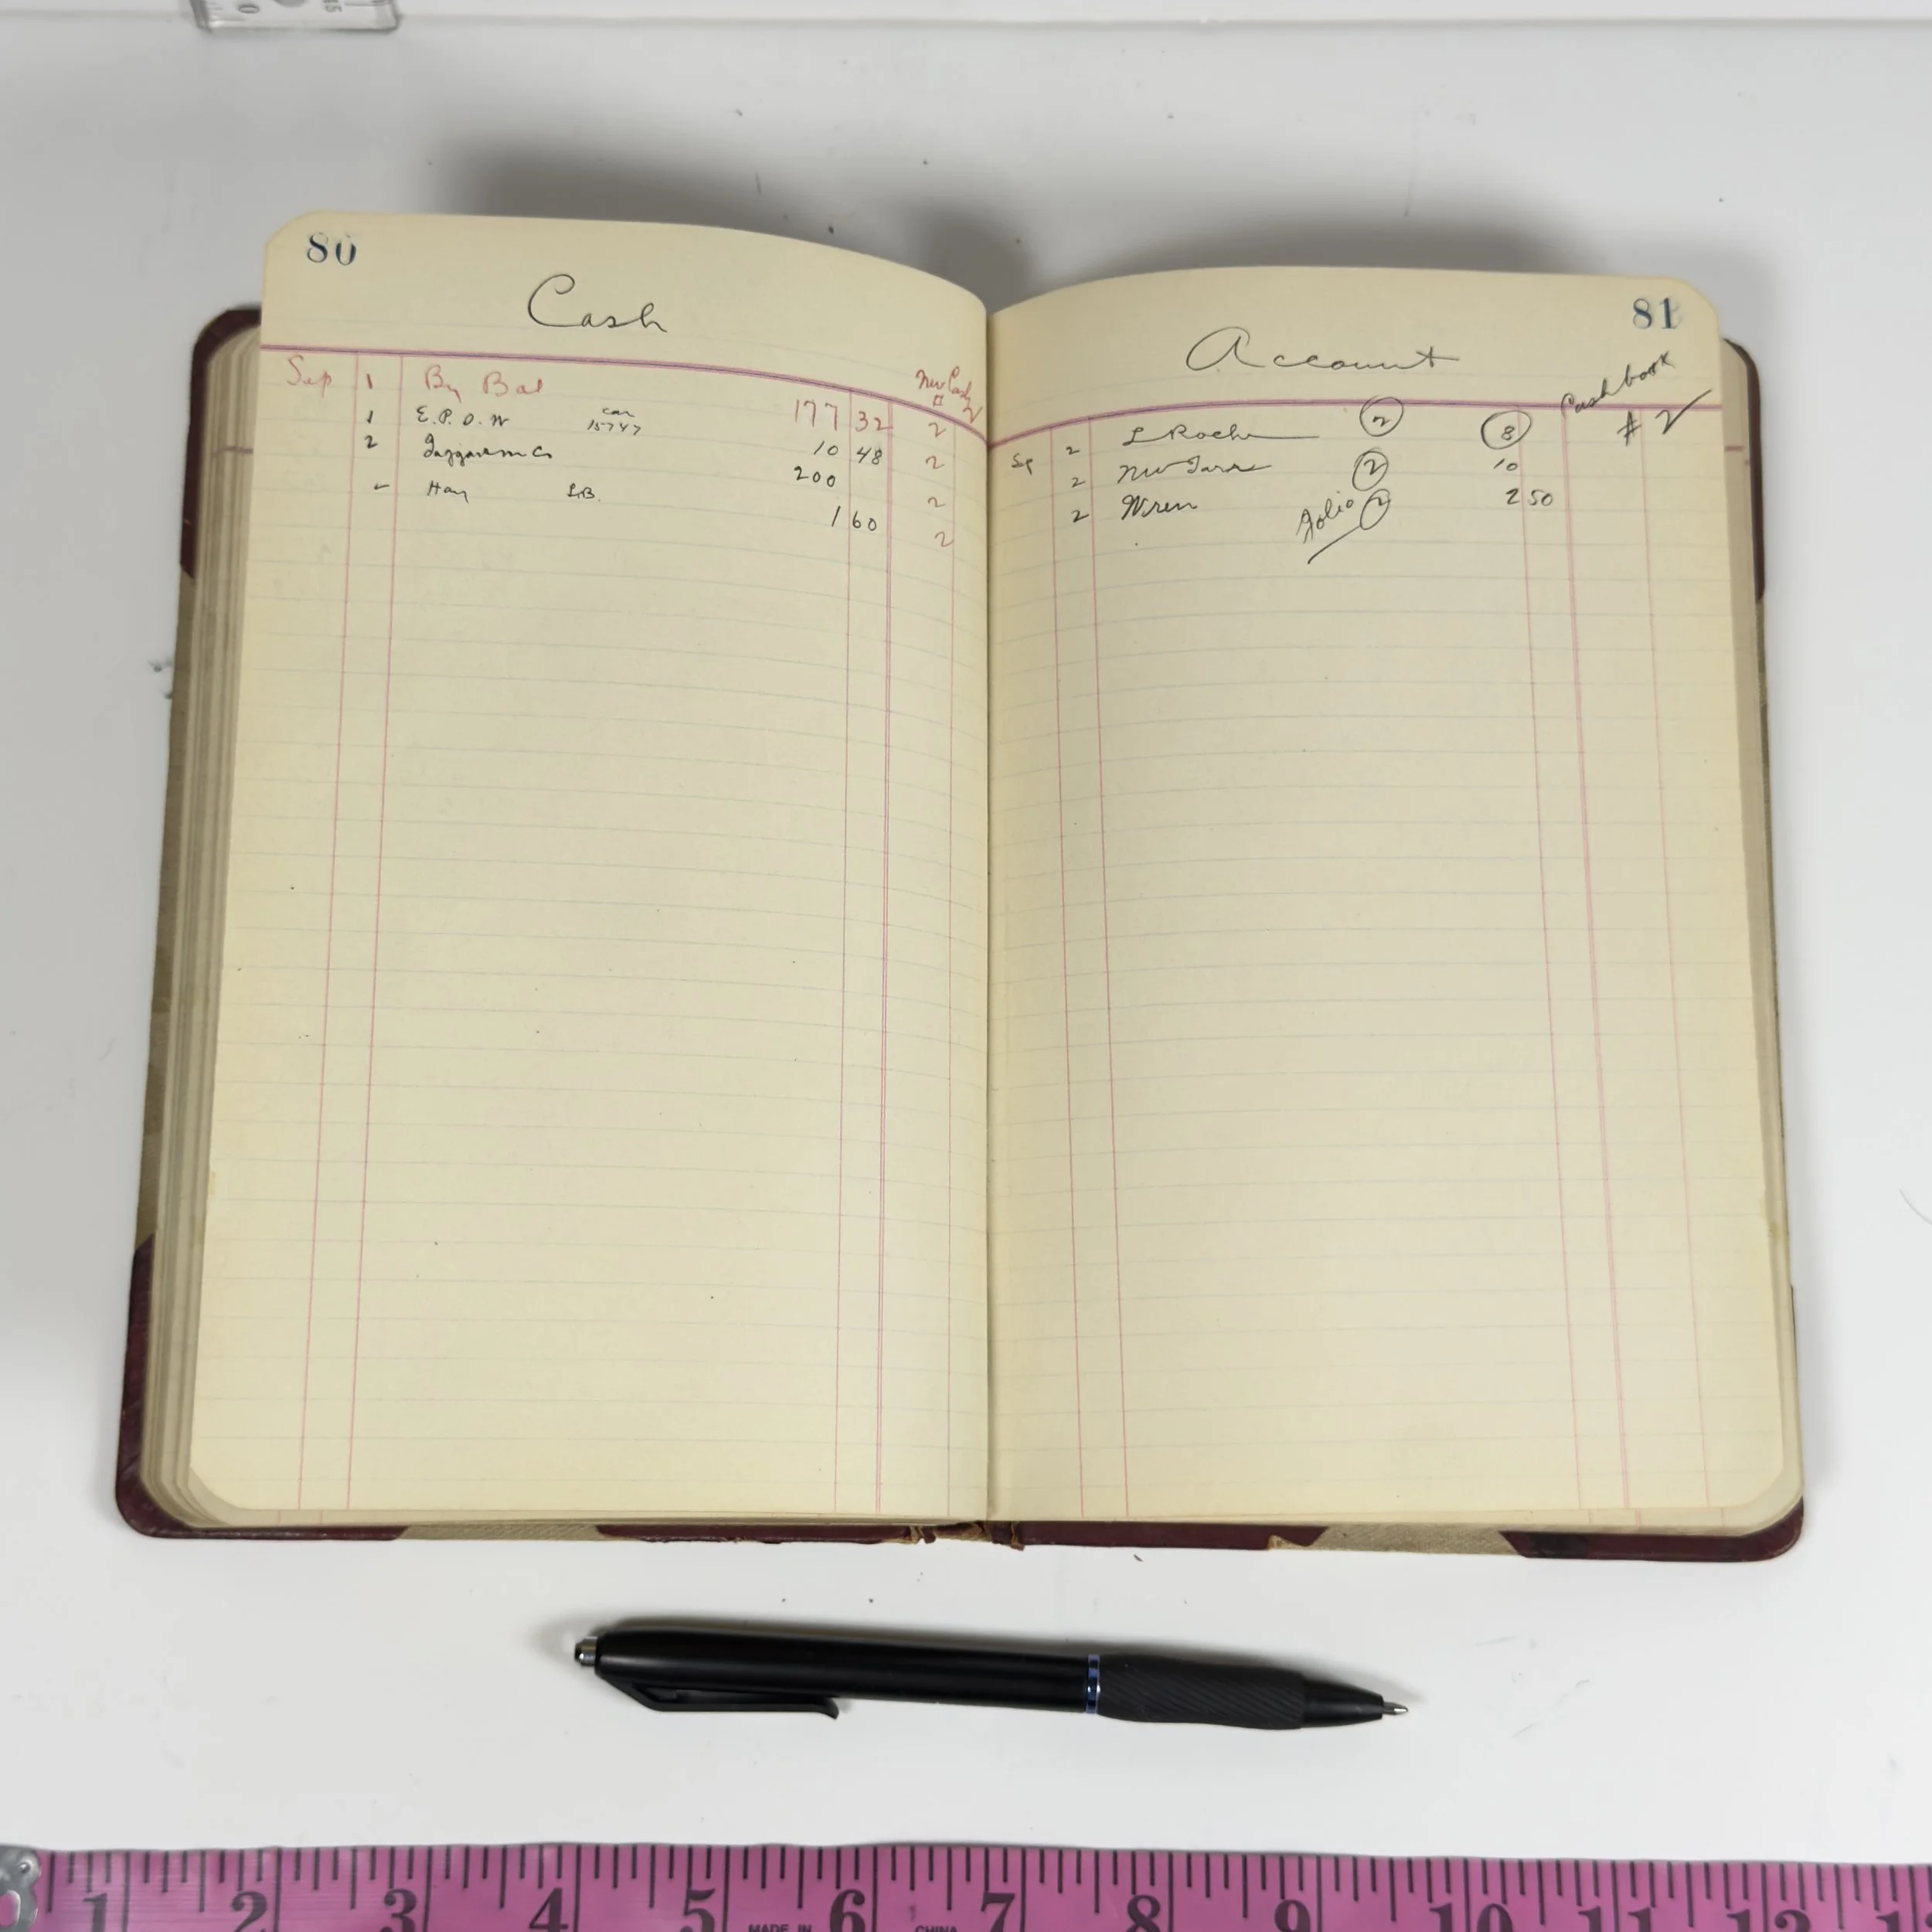 80
Cash
Sep 1 By Bal 177 32 2
New Cash # 2
1 E.P.O.W car 15747 10 48 2
2 200 2
" Hay L.B. 1 60 2
81
Account
Cash book # 2
Sep 2 L Roche 2 8
2 New 2 10
2 Wren Folio 2 2 50
1 2 3 4 5 6 7 8 9 10 11 12
MADE IN CHINA
0 15